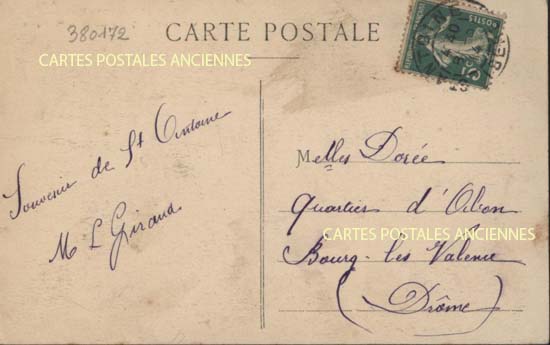 380172
CARTE POSTALE
CARTES POSTALES ANCIENNES
Souvenir de St Antoine
M L Giraud
Melles Dorée
quartier d'Orbon
CARTES POSTALES ANCIENNES
Bourg-lès Valence
(Drôme)